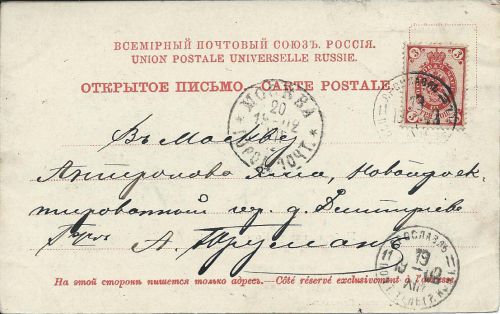 ВСЕМІРНЫЙ ПОЧТОВЫЙ СОЮЗЪ. РОССІЯ.
UNION POSTALE UNIVERSELLE RUSSIE.
ОТКРЫТОЕ ПИСЬМО. — CARTE POSTALE.
МОСКВА
20
ПОЧТ.
3 3
ЯРОСЛАВЛЬ
19
Въ Москву
Антропова яма, Новопроек-
тированный пер. д. Дмитріева
А. Труманъ
ЯРОСЛАВЛЬ
11 19
На этой сторонѣ пишется только адресъ. — Côté réservé exclusivement à l'adresse.